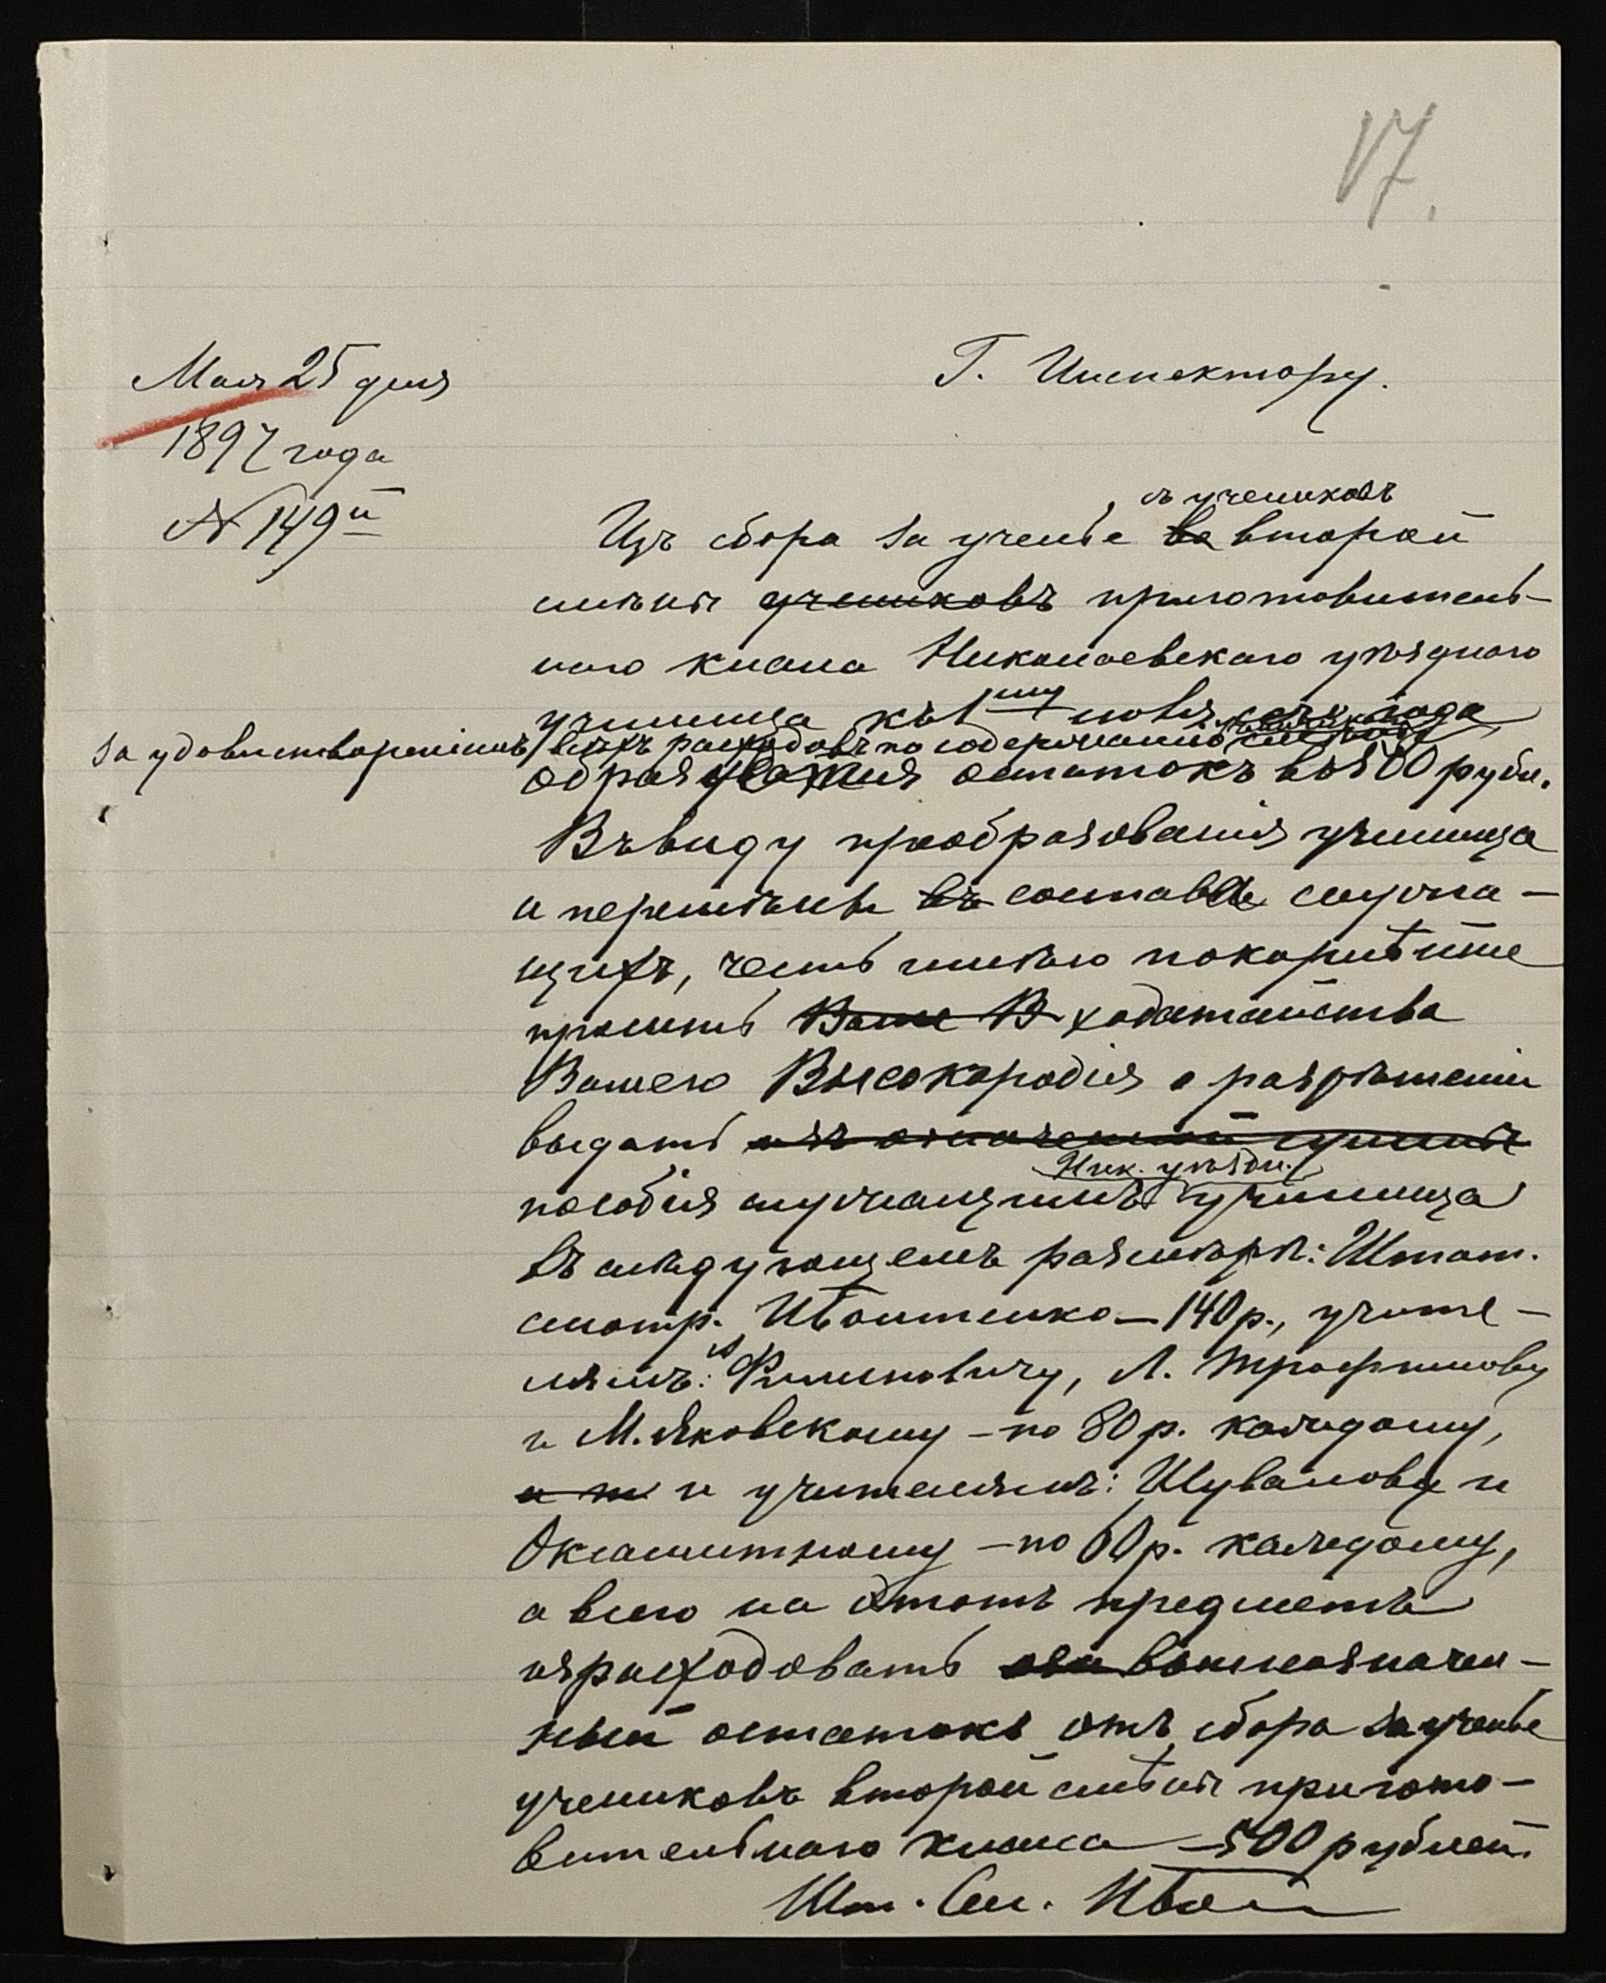 17.
Мая 25 дня
1897 года
№ 149й
Г. Инспектору.
съ учениковъ
Изъ сбора за ученье во второй
смѣнѣ учениковъ приготовитель-
наго класса Николаевскаго уѣзднаго
училища къ 1му сего года
за удовлетвореніемъ всѣхъ расходовъ по содержанію
образовался остатокъ въ 500 рубл.
Въ виду преобразованія училища
и перемѣны въ составѣ служа-
щихъ, честь имѣю покорнѣйше
просить Ваше В ходатайства
Вашего Высокородія о разрѣшеніи
выдать изъ означенной суммы
Ник. уѣздн.
пособія служащимъ училища
въ слѣдующемъ размѣрѣ: Штат.
смотр. Ивашенко – 140 р., учите-
лямъ: Филиповичу, Л. Трофимову
и М. Яковскому – по 80 р. каждому,
и учителямъ: Шувалову и
Оксамитному – по 60 р. каждому,
а всего на этотъ предметъ
израсходовать вышеозначен-
ный остатокъ отъ сбора за ученье
учениковъ второй смѣны пригото-
вительнаго класса – 500 рублей.
Шт. См.